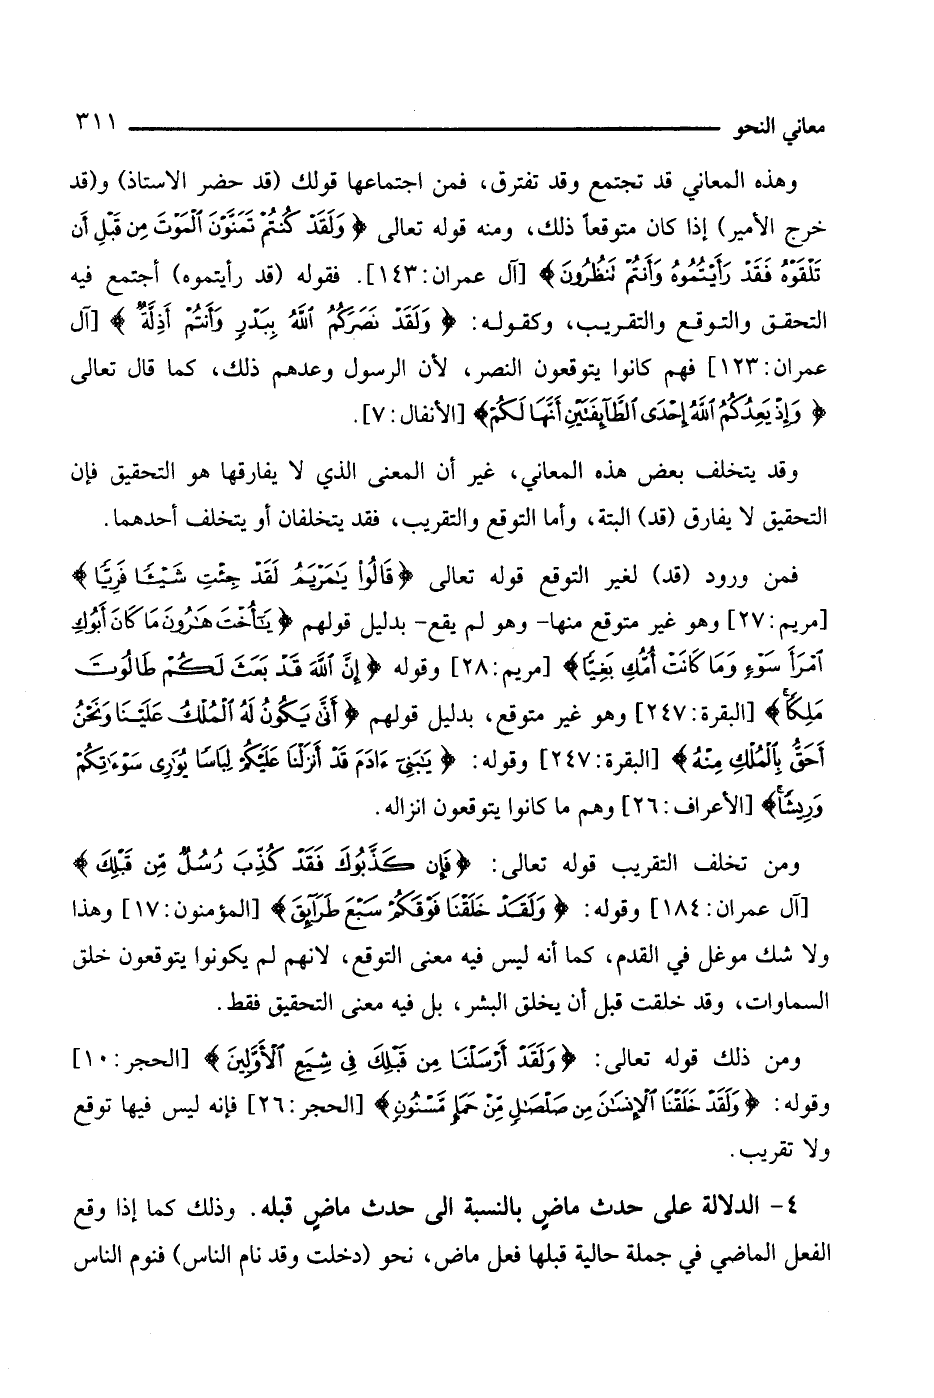 معاني النحو ٣١١
وهذه المعاني قد تجتمع وقد تفترق، فمن اجتماعها قولك (قد حضر الاستاذ) و(قد
خرج الأمير) إذا كان متوقعاً ذلك، ومنه قوله تعالى ﴿ وَلَقَدْ كُنتُمْ تَمَنَّوْنَ ٱلْمَوْتَ مِن قَبْلِ أَن
تَلْقَوْهُ فَقَدْ رَأَيْتُمُوهُ وَأَنتُمْ تَنظُرُونَ﴾ [آل عمران:١٤٣]. فقوله (قد رأيتموه) أجتمع فيه
التحقق والتوقع والتقريب، وكقوله: ﴿ وَلَقَدْ نَصَرَكُمُ ٱللَّهُ بِبَدْرٍ وَأَنتُمْ أَذِلَّةٌ ﴾ [آل
عمران:١٢٣] فهم كانوا يتوقعون النصر، لأن الرسول وعدهم ذلك، كما قال تعالى
﴿ وَإِذْ يَعِدُكُمُ ٱللَّهُ إِحْدَى ٱلطَّآئِفَتَيْنِ أَنَّهَا لَكُمْ﴾ [الأنفال:٧].
وقد يتخلف بعض هذه المعاني، غير أن المعنى الذي لا يفارقها هو التحقيق فإن
التحقيق لا يفارق (قد) البتة، وأما التوقع والتقريب، فقد يتخلفان أو يتخلف أحدهما.
فمن ورود (قد) لغير التوقع قوله تعالى ﴿قَالُوا۟ يَٰمَرْيَمُ لَقَدْ جِئْتِ شَيْـًٔا فَرِيًّا ﴾
[مريم:٢٧] وهو غير متوقع منها- وهو لم يقع- بدليل قولهم ﴿ يَٰٓأُخْتَ هَٰرُونَ مَا كَانَ أَبُوكِ
ٱمْرَأَ سَوْءٍ وَمَا كَانَتْ أُمُّكِ بَغِيًّا﴾ [مريم:٢٨] وقوله ﴿ إِنَّ ٱللَّهَ قَدْ بَعَثَ لَكُمْ طَالُوتَ
مَلِكًا﴾ [البقرة:٢٤٧] وهو غير متوقع، بدليل قولهم ﴿ أَنَّىٰ يَكُونُ لَهُ ٱلْمُلْكُ عَلَيْنَا وَنَحْنُ
أَحَقُّ بِٱلْمُلْكِ مِنْهُ ﴾ [البقرة:٢٤٧] وقوله: ﴿ يَٰبَنِىٓ ءَادَمَ قَدْ أَنزَلْنَا عَلَيْكُمْ لِبَاسًا يُوَٰرِى سَوْءَٰتِكُمْ
وَرِيشًا﴾ [الأعراف:٢٦] وهم ما كانوا يتوقعون انزاله.
ومن تخلف التقريب قوله تعالى: ﴿فَإِن كَذَّبُوكَ فَقَدْ كُذِّبَ رُسُلٌ مِّن قَبْلِكَ ﴾
[آل عمران:١٨٤] وقوله: ﴿ وَلَقَدْ خَلَقْنَا فَوْقَكُمْ سَبْعَ طَرَآئِقَ﴾ [المؤمنون:١٧] وهذا
ولا شك موغل في القدم، كما أنه ليس فيه معنى التوقع، لانهم لم يكونوا يتوقعون خلق
السماوات، وقد خلقت قبل أن يخلق البشر، بل فيه معنى التحقيق فقط.
ومن ذلك قوله تعالى: ﴿وَلَقَدْ أَرْسَلْنَا مِن قَبْلِكَ فِى شِيَعِ ٱلْأَوَّلِينَ ﴾ [الحجر:١٠]
وقوله: ﴿ وَلَقَدْ خَلَقْنَا ٱلْإِنسَٰنَ مِن صَلْصَٰلٍ مِّنْ حَمَإٍ مَّسْنُونٍ﴾ [الحجر:٢٦] فإنه ليس فيها توقع
ولا تقريب.
٤- الدلالة على حدث ماضٍ بالنسبة الى حدث ماضٍ قبله. وذلك كما إذا وقع
الفعل الماضي في جملة حالية قبلها فعل ماض، نحو (دخلت وقد نام الناس) فنوم الناس